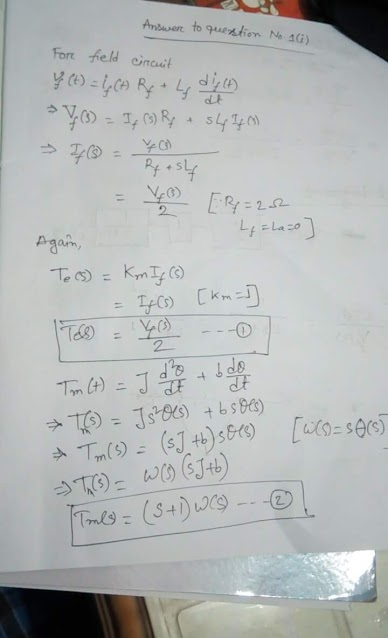 Answer to question No 1(i)
For field circuit
V_f(t) = i_f(t) R_f + L_f di_f(t)/dt
⇒ V_f(s) = I_f(s) R_f + sL_f I_f(s)
⇒ I_f(s) = V_f(s) / (R_f + sL_f)
= V_f(s)/2 [∵ R_f = 2Ω
L_f = La = 0]
Again,
Te(s) = Km I_f(s)
= I_f(s) [Km = 1]
Te(s) = V_f(s)/2 ---- ①
Tm(t) = J d²θ/dt + b dθ/dt
⇒ Tm(s) = Js²θ(s) + bsθ(s)
⇒ Tm(s) = (sJ+b) sθ(s) [ω(s) = sθ(s)
⇒ Tm(s) = ω(s) (sJ+b)
Tm(s) = (s+1) ω(s) ---- ②